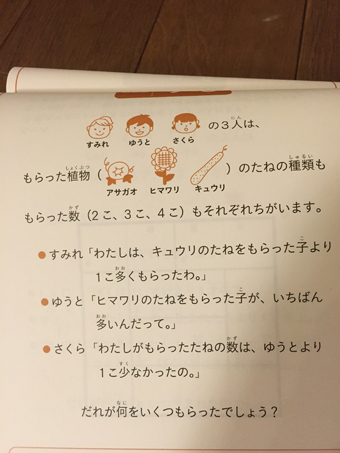 すみれ ゆうと さくら の3人は、
もらった植物（アサガオ ヒマワリ キュウリ）のたねの種類も
もらった数（2こ、3こ、4こ）もそれぞれちがいます。
●すみれ「わたしは、キュウリのたねをもらった子より
1こ多くもらったわ。」
●ゆうと「ヒマワリのたねをもらった子が、いちばん
多いんだって。」
●さくら「わたしがもらったたねの数は、ゆうとより
1こ少なかったの。」
だれが何をいくつもらったでしょう？